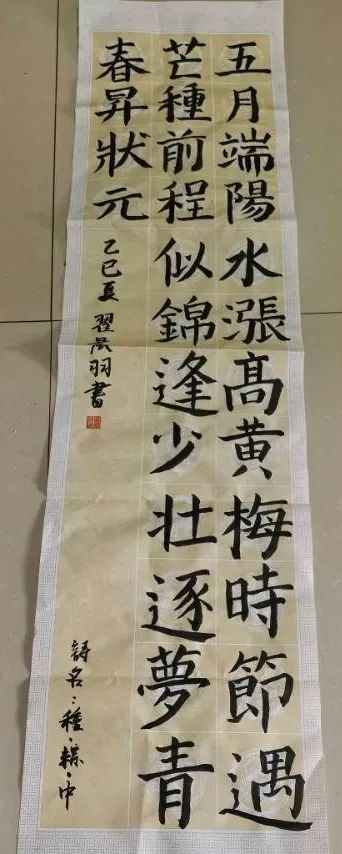 五月端陽水漲高黃梅時節遇
芒種前程似錦逢少壯逐夢青
春昇狀元
乙巳夏 翟晨羽書
詩名：種·粽·中